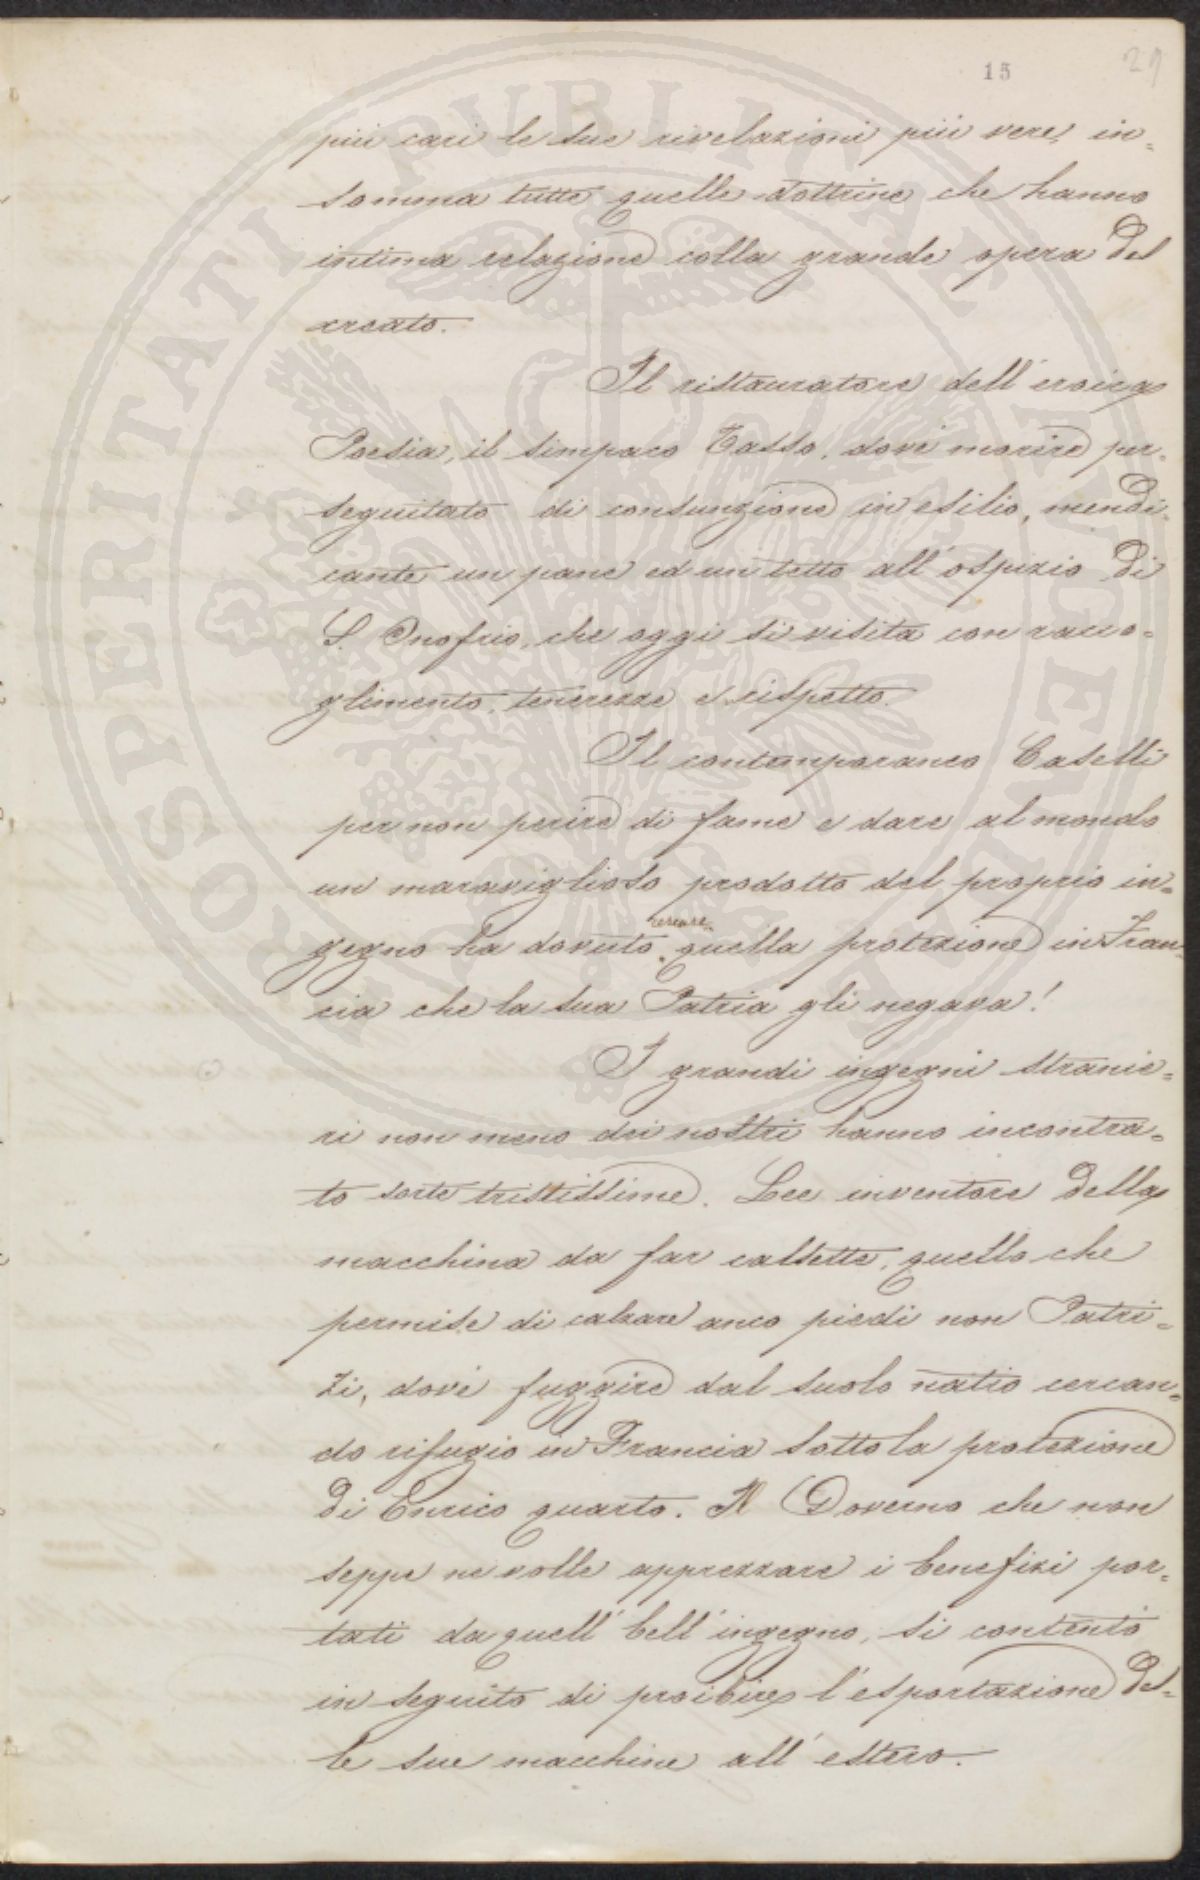 15
29
più cari le sue rivelazioni più vere, in=
somma tutte quelle dottrine che hanno
intima relazione colla grande opera del
creato.
Il ristauratore dell'eroica
Poesia, il simpaco Tasso, dovè morire per=
seguitato di consunzione in esilio, mendi=
cante un pane ed un tetto all'ospizio di
S. Onofrio, che oggi si visita con racco=
glimento, tenerezze e rispetto.
Il contemporaneo Caselli
per non perire di fame e dare al mondo
un maraviglioso prodotto del proprio in=
cercare
gegno ha dovuto quella protezione in Fran=
cia che la sua Patria gli negava!
I grandi ingegni stranie=
ri non meno dei nostri hanno incontra=
to sorte tristissime. Lee inventore della
macchina da far calsette, quello che
permise di calzare anco piedi non Patri=
zi, dovè fuggire dal suolo natio cercan=
do rifugio in Francia sotto la protezione
di Enrico quarto. Il Governo che non
seppe ne volle apprezzare i benefizi por=
tati da quell'bell'ingegno, si contentò
in seguito di proibire l'esportazione del=
le sue macchine all'estero.
PROSPERITATI PUBLICAE AUGENDAE